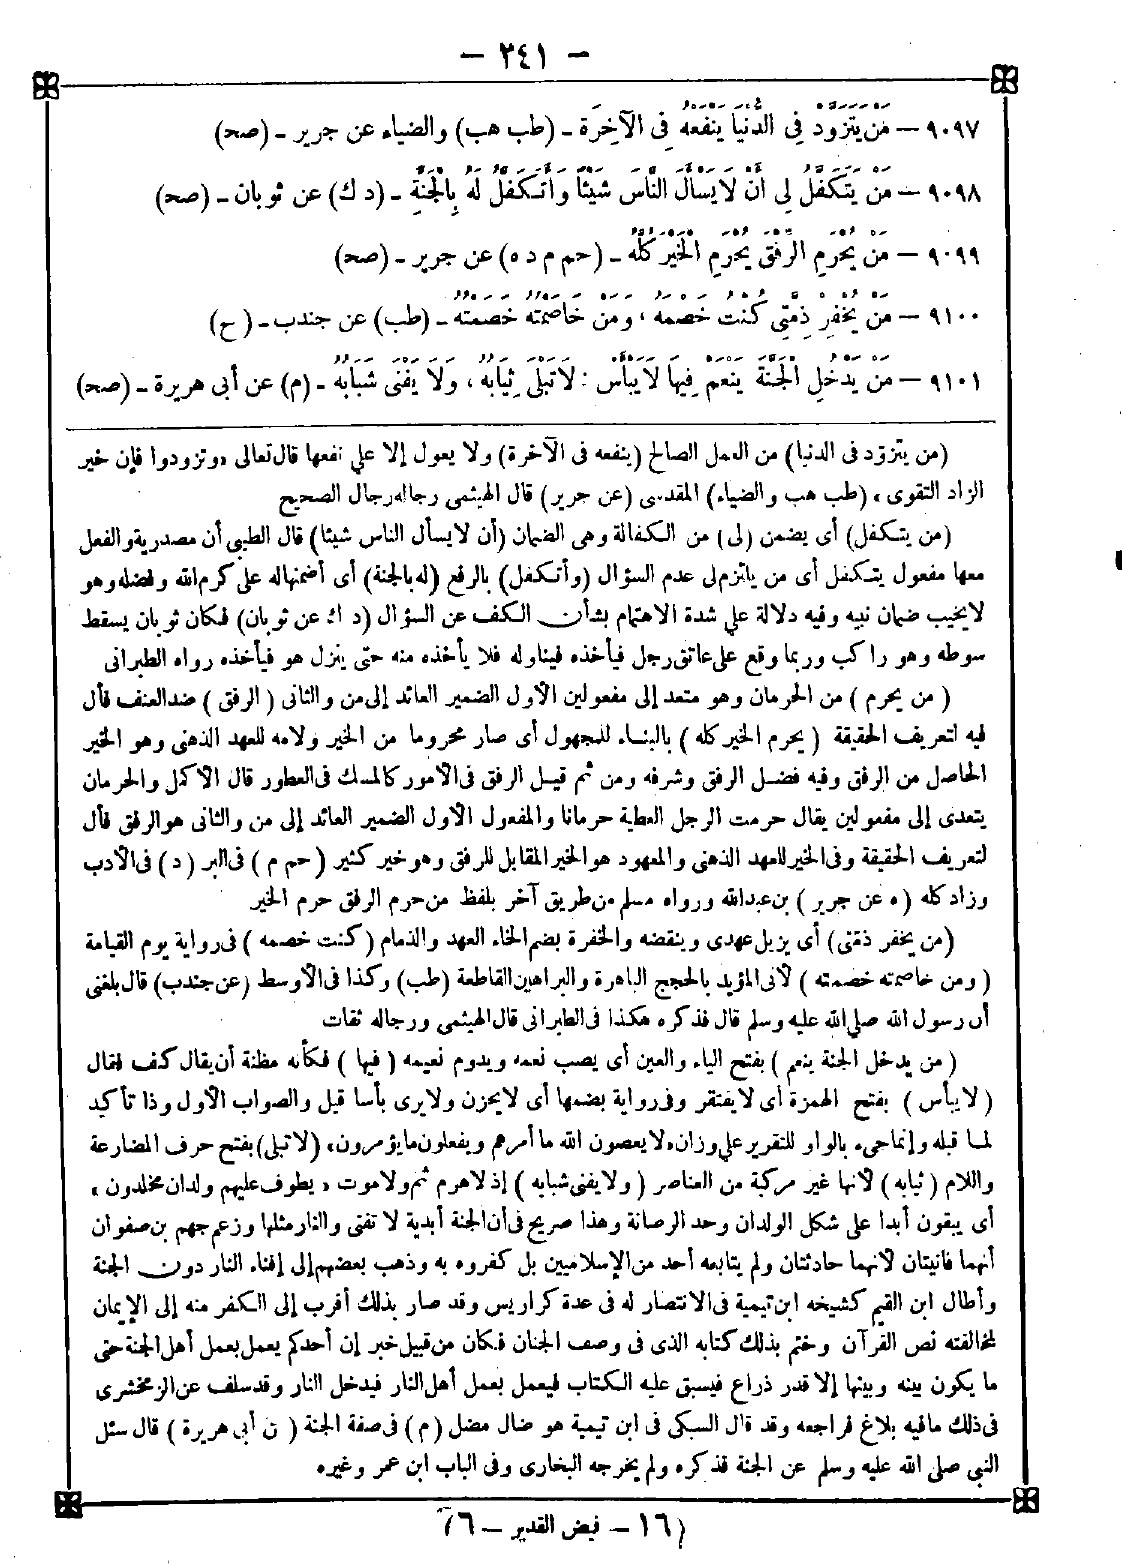 — ٢٤١ —
٩٠٩٧ — مَنْ يَتَزَوَّدْ فِى الدُّنْيَا يَنْفَعْهُ فِى الْآخِرَةِ - (طب هب) والضياء عن جرير - (صح)
٩٠٩٨ — مَنْ يَتَكَفَّلُ لِى أَنْ لَا يَسْأَلَ النَّاسَ شَيْئًا وَأَتَكَفَّلُ لَهُ بِالْجَنَّةِ - (د ك) عن ثوبان - (صح)
٩٠٩٩ — مَنْ يُحْرَمِ الرِّفْقَ يُحْرَمِ الْخَيْرَ كُلَّهُ - (حم م د ه) عن جرير - (صح)
٩١٠٠ — مَنْ يُخْفِرْ ذِمَّتِى كُنْتُ خَصْمَهُ ، وَمَنْ خَاصَمْتُهُ خَصَمْتُهُ - (طب) عن جندب - (ح)
٩١٠١ — مَنْ يَدْخُلِ الْجَنَّةَ يَنْعَمْ فِيهَا لَا يَبْأَسْ : لَا تَبْلَى ثِيَابُهُ ، وَلَا يَفْنَى شَبَابُهُ - (م) عن أبى هريرة - (صح)
(من يتزود فى الدنيا) من العمل الصالح (ينفعه فى الآخرة) ولا يعول إلا على نفعها قال تعالى «وتزودوا فإن خير
الزاد التقوى» (طب هب والضياء) المقدسى (عن جرير) قال الهيثمى رجاله رجال الصحيح
(من يتكفل) أى يضمن (لى) من الكفالة وهى الضمان (أن لا يسأل الناس شيئا) قال الطيبى أن مصدرية والفعل
معها مفعول يتكفل أى من يلتزم لى عدم السؤال (وأتكفل) بالرفع (له بالجنة) أى أضمنها له على كرم الله وفضله وهو
لا يخيب ضمان نبيه وفيه دلالة على شدة الاهتمام بشأن الكف عن السؤال (د ك عن ثوبان) فكان ثوبان يسقط
سوطه وهو راكب وربما وقع على عاتق رجل فيأخذه فيناوله فلا يأخذه منه حتى ينزل هو فيأخذه رواه الطبرانى
(من يحرم) من الحرمان وهو متعد إلى مفعولين الأول الضمير العائد إلى من والثانى (الرفق) ضد العنف فأل
فيه لتعريف الحقيقة (يحرم الخير كله) بالبناء للمجهول أى صار محروما من الخير ولامه للعهد الذهنى وهو الخير
الحاصل من الرفق وفيه فضل الرفق وشرفه ومن ثم قيل الرفق فى الأمور كالمسك فى العطور قال الأكمل والحرمان
يتعدى إلى مفعولين يقال حرمت الرجل العطية حرمانا والمفعول الأول الضمير العائد إلى من والثانى هو الرفق فأل
لتعريف الحقيقة وفى الخير للعهد الذهنى والمعهود هو الخير المقابل للرفق وهو خير كثير (حم م) فى البر (د) فى الأدب
وزاد كله (ه عن جرير) بن عبدالله ورواه مسلم من طريق آخر بلفظ من حرم الرفق حرم الخير
(من يخفر ذمتى) أى يزيل عهدى وينقضه والخفرة بضم الخاء العهد والذمام (كنت خصمه) فى رواية يوم القيامة
(ومن خاصمته خصمته) لأنى المؤيد بالحجج الباهرة والبراهين القاطعة (طب) وكذا فى الأوسط (عن جندب) قال بلغنى
أن رسول الله صلى الله عليه وسلم قال فذكره هكذا فى الطبرانى قال الهيثمى ورجاله ثقات
(من يدخل الجنة ينعم) بفتح الياء والعين أى يصب نعمه ويدوم نعيمه (فيها) فكأنه مظنة أن يقال كيف فقال
(لا يبأس) بفتح الهمزة أى لا يفتقر وفى رواية بضمها أى لا يحزن ولا يرى بأسا قيل والصواب الأول وذا تأكيد
لما قبله وإنما جىء بالواو للتقرير على وزان «لا يعصون الله ما أمرهم ويفعلون ما يؤمرون» (لا تبلى) بفتح حرف المضارعة
واللام (ثيابه) لأنها غير مركبة من العناصر (ولا يفنى شبابه) إذ لا هرم ثم ولا موت «يطوف عليهم ولدان مخلدون»
أى يبقون أبدا على شكل الولدان وحد الرصانة وهذا صريح فى أن الجنة أبدية لا تفنى والنار مثلها وزعم جهم بن صفوان
أنهما فانيتان لأنهما حادثتان ولم يتابعه أحد من الإسلاميين بل كفروه به وذهب بعضهم إلى إفناء النار دون الجنة
وأطال ابن القيم كشيخه ابن تيمية فى الانتصار له فى عدة كراريس وقد صار بذلك أقرب إلى الكفر منه إلى الإيمان
لمخالفته نص القرآن وختم بذلك كتابه الذى فى وصف الجنان فكان من قبيل خبر إن أحدكم يعمل بعمل أهل الجنة حتى
ما يكون بينه وبينها إلا قدر ذراع فيسبق عليه الكتاب فيعمل بعمل أهل النار فيدخل النار وقد سلف عن الزمخشرى
فى ذلك ما فيه بلاغ فراجعه وقد قال السبكى فى ابن تيمية هو ضال مضل (م) فى صفة الجنة (ن أبى هريرة) قال سئل
النبى صلى الله عليه وسلم عن الجنة فذكره ولم يخرجه البخارى وفى الباب ابن عمر وغيره
(١٦ — فيض القدير — ٦)